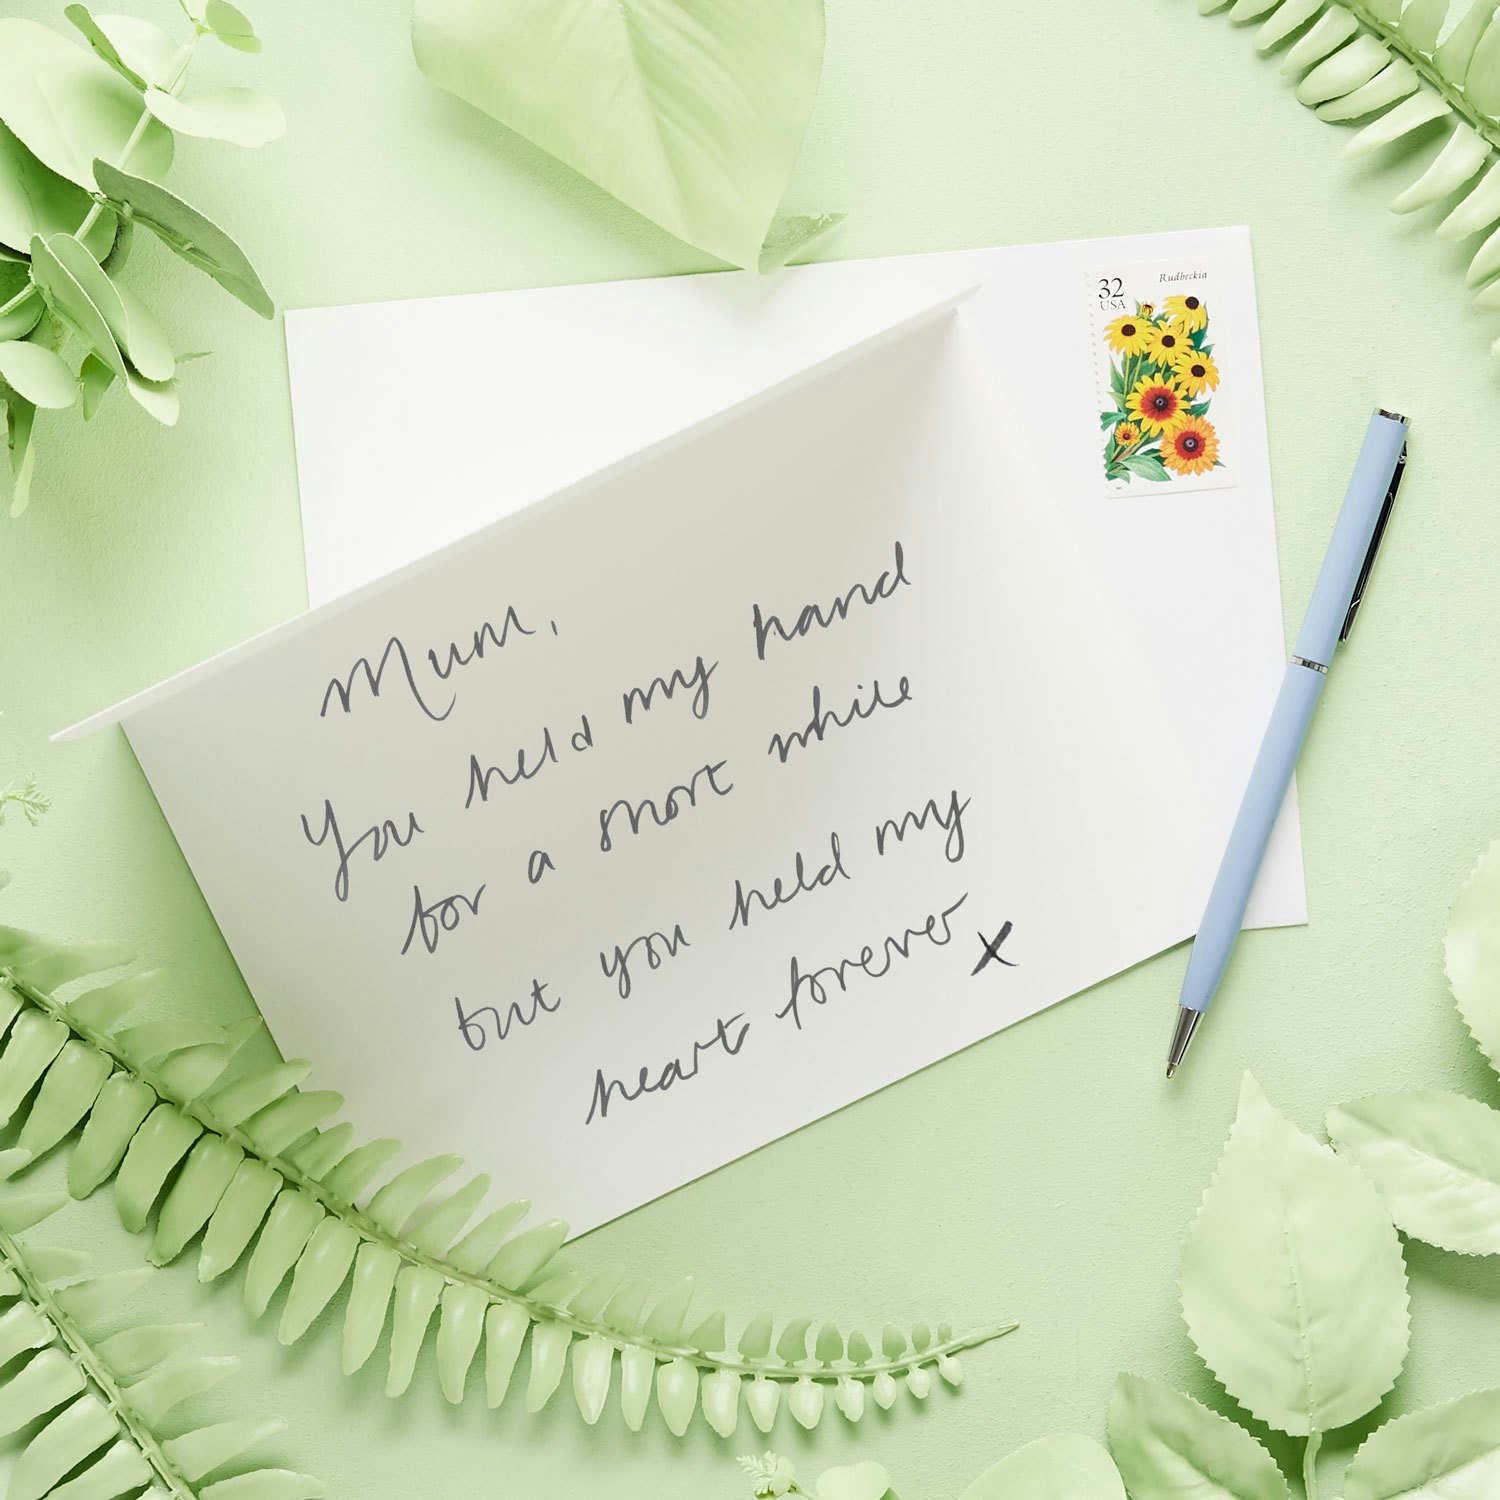 32
USA
Rudbeckia
Mum,
You held my hand
for a short while
but you held my
heart forever x